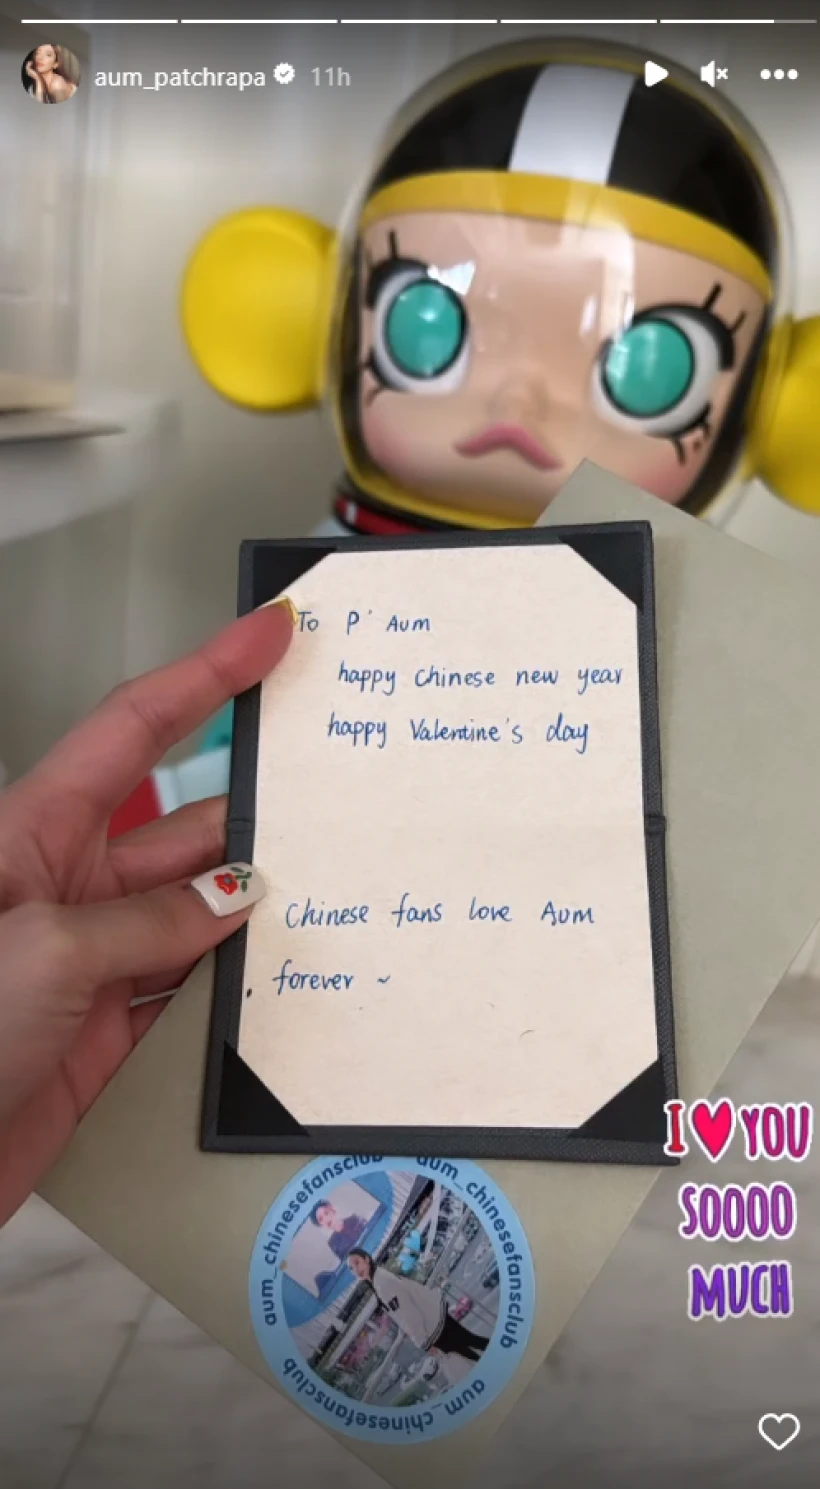 aum_patchrapa 11h
To P' Aum
happy Chinese new year
happy Valentine's day
Chinese fans love Aum
forever ~
I ❤ YOU
SOOOO
MUCH
aum_chinesefansclub
aum_chinesefansclub
aum_chinesefansclub